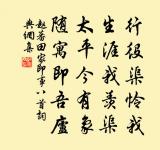 行役渠怜我
生涯我羨渠
太平今有象
随寓即吾廬
趙著田家即事八首詞
典網集